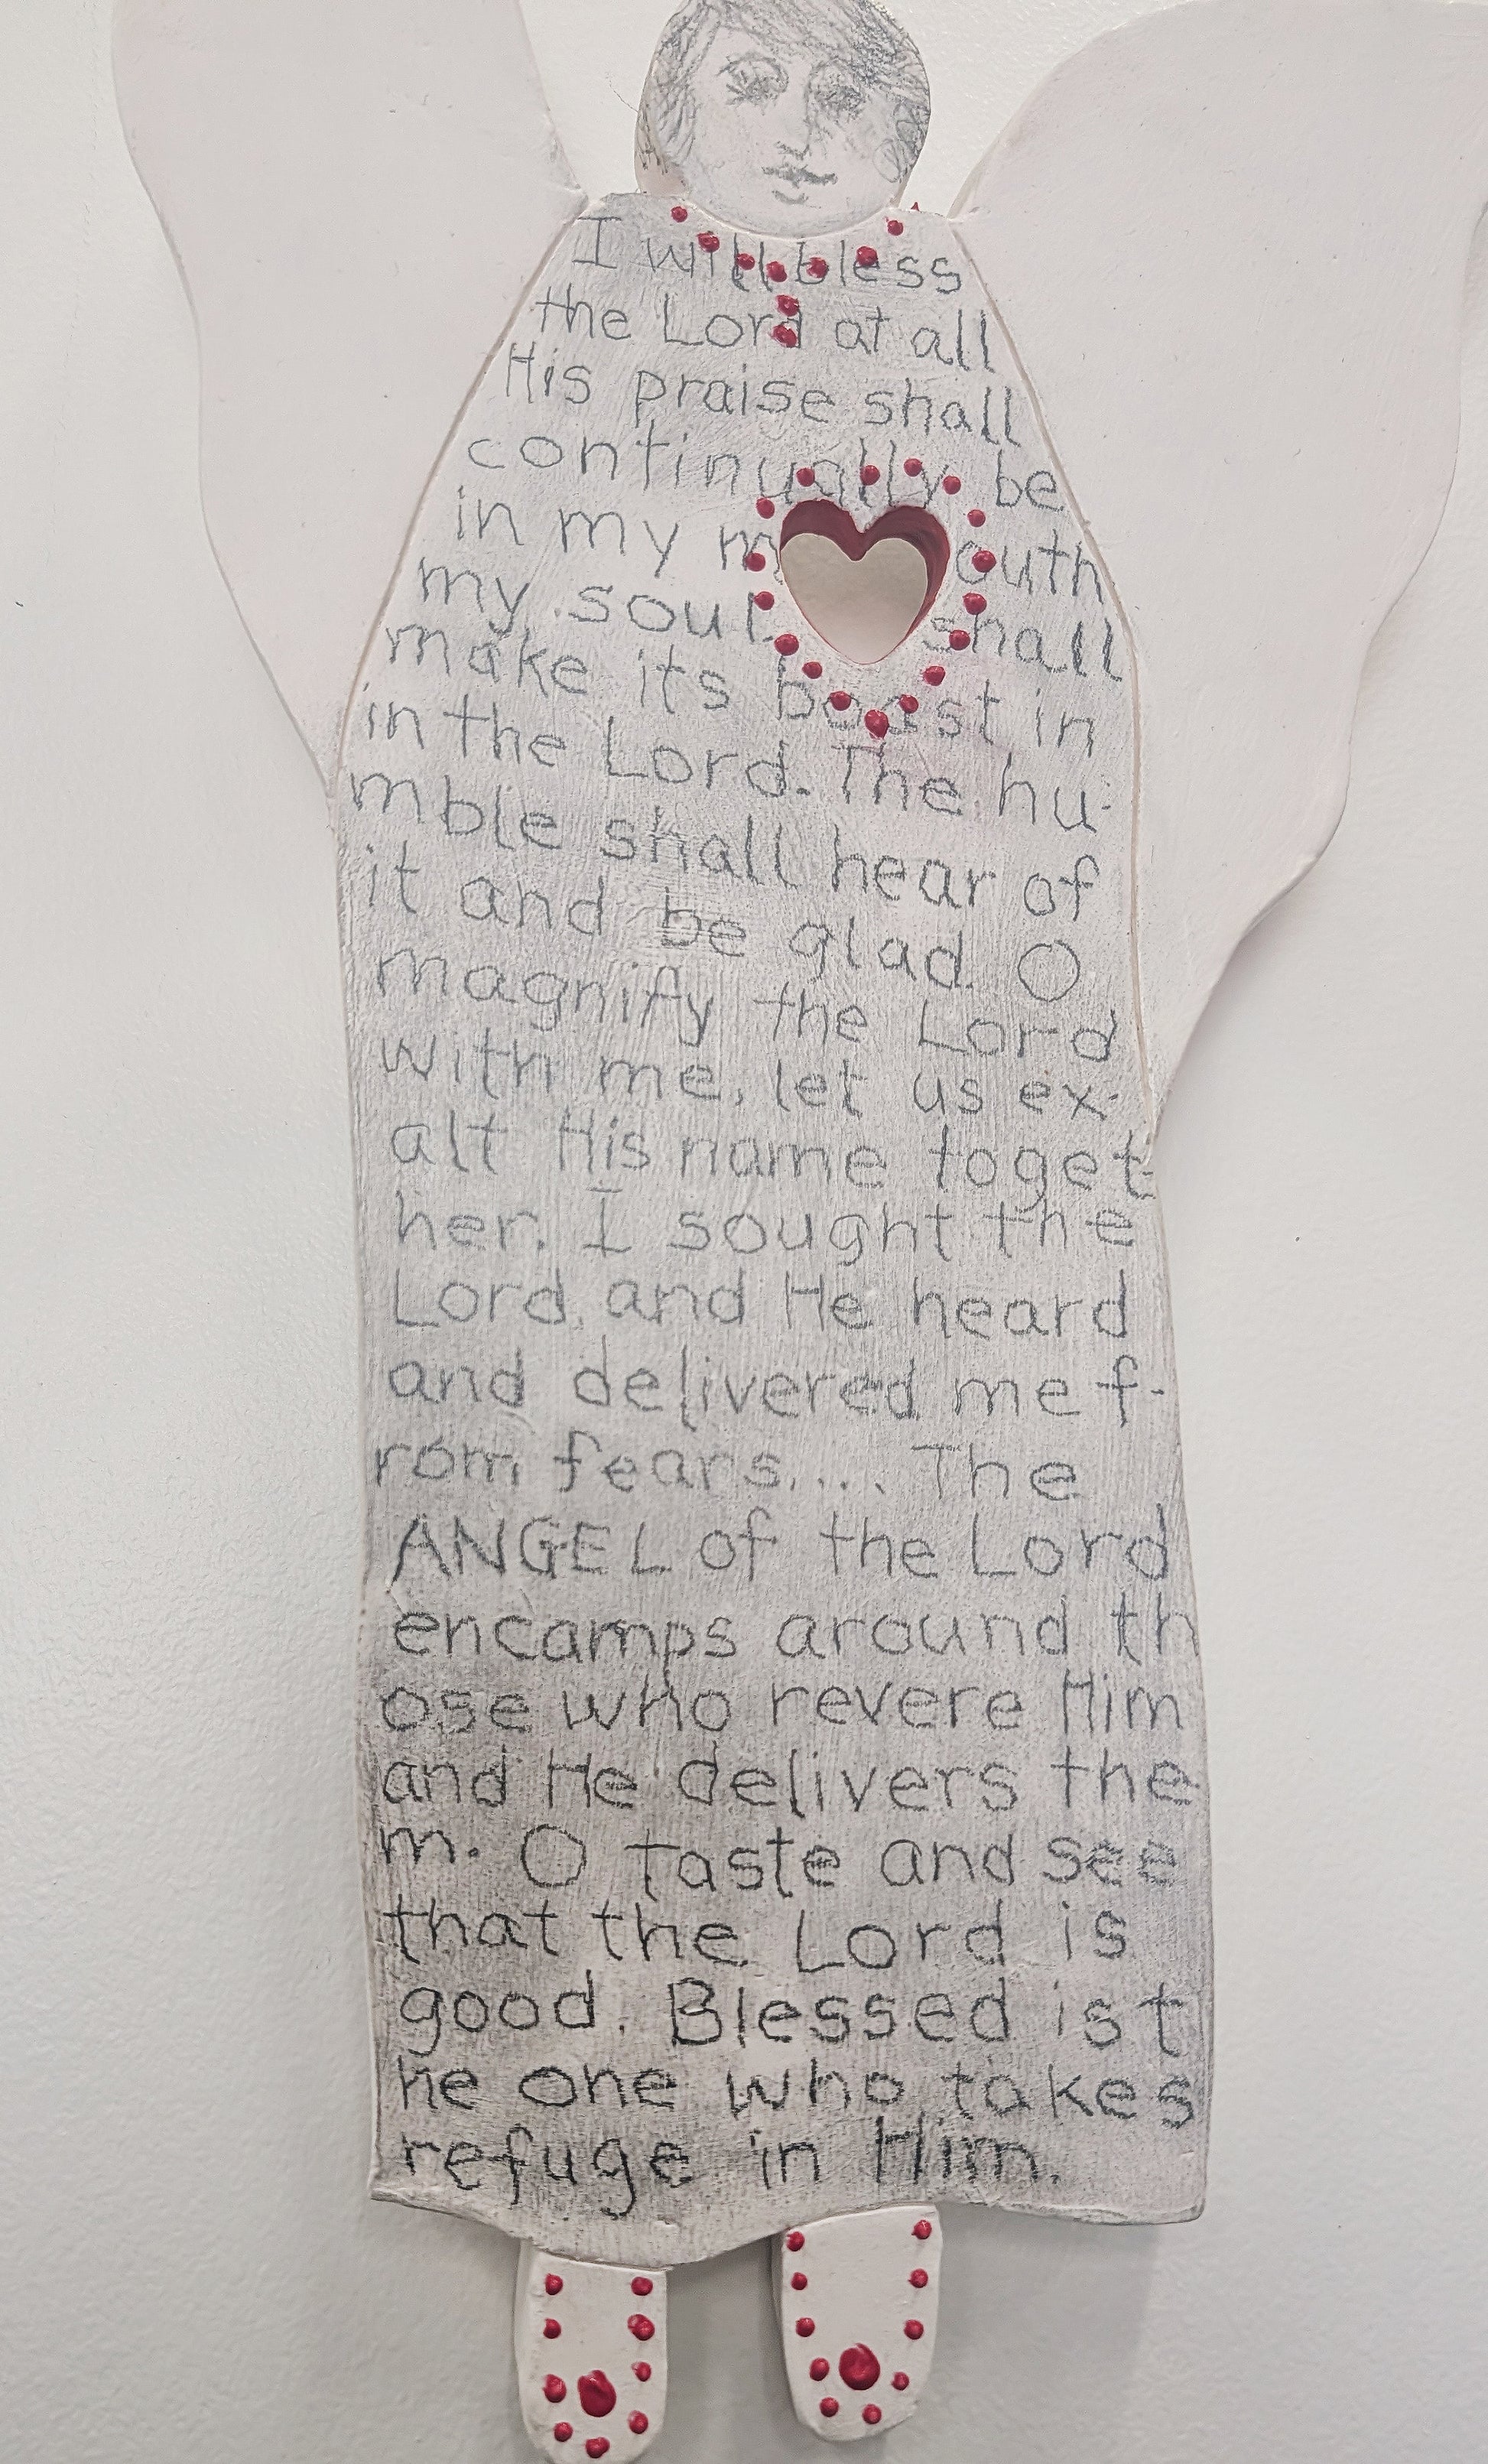 I will bless
the Lord at all
His praise shall
continually be
in my mouth
my soul shall
make its boast in
in the Lord. The hu-
mble shall hear of
it and be glad. O
magnify the Lord
with me, let us ex-
alt His name toget-
her. I sought the
Lord, and He heard
and delivered me f-
rom fears.... The
ANGEL of the Lord
encamps around th
ose who revere Him
and He delivers the
m. O taste and see
that the Lord is
good. Blessed is t
he one who takes
refuge in Him.